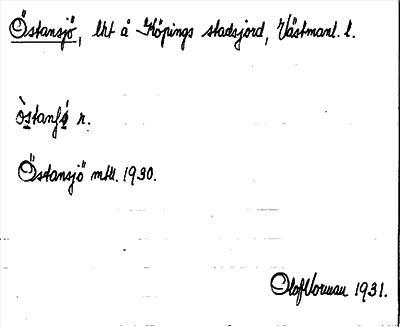 Östansjö, lht å Köpings stadsjord, Västmanl. l.
r.
Östansjö mtl. 1930.
Olof Norman 1931.